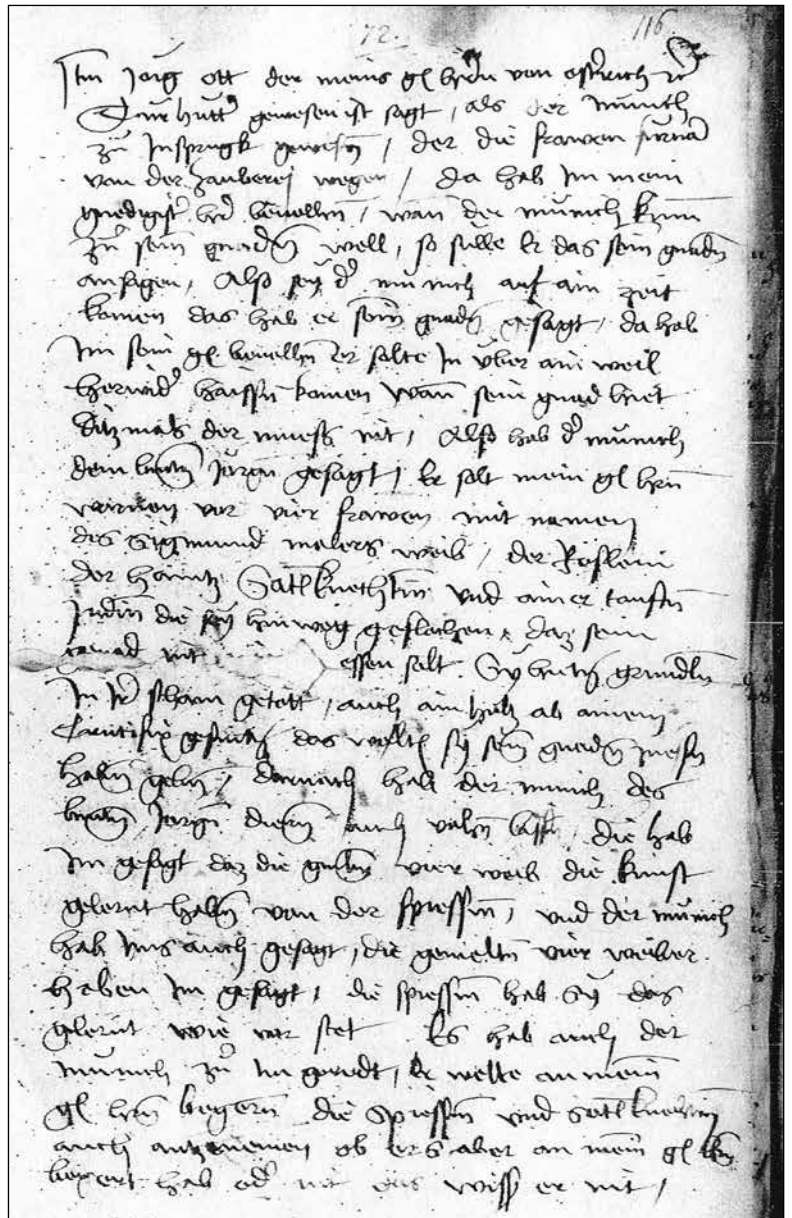 72.
116
Itm Jorg ott der meins gl hrn von osterich
Turhuttr gewesen ist sagt, als der munch
zu Insprugk gewesen, der die frawen
von der Zauberej wegen, da hab Im mein
gnedigistr hr beuelhn, wan der munich kum
zu sein gnadn well, so sulle Er das sein gnadn
ansagen, Also sey dr munich auf ain zeit
komen das hab er sein gnadn gesagt, da hab
Im sein gl beuelhn er solte In uber ain weil
herwidr haissn komen wan sein gnad hiet
ditzmals der muess nit, Also hab dr munich
dem Jorgn gesagt, Er solt mein gl hrn
warnen vor vier frawen mit namen
des Sigmund malers weib, der Röslein
der haintz Satlknechtin und ainer tauftn
Judin die sey hinweg geflohen, daz sein
gnad nit essen solt Sy hietn
In Ir scham getott, auch ain holtz ab ainem
Crucifix das woltn sy sein gnadn zu essn
habn gebn, darnach hab der munich des
Jorgn diern auch die hab
Im gesagt daz die vier weib die kunst
gelernt habn von der spiessin, und der munich
hab Ims auch gesagt, die gemeltn vier weiber
haben Im gesagt, die spiessin hab Sy das
glernt wie vor stet Es hab auch der
munich zu Im geredt, Er welte an mein
gl hrn begern die Spiessin und Satlknechtin
auch antzenemen ob ers aber an mein gl hrn
begert hab odr nit das wiss er nit,